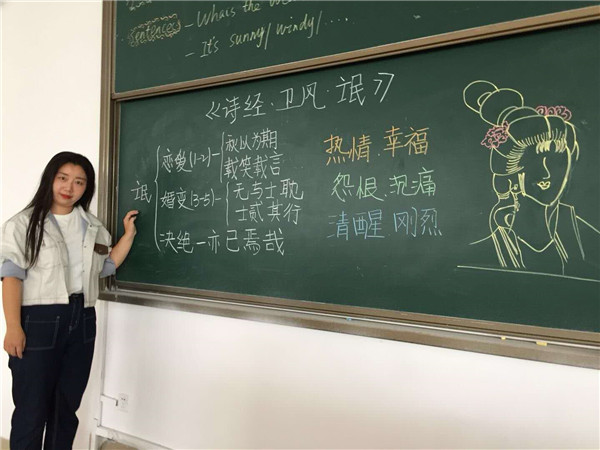 Sentences - Whats the
- It's sunny/ windy/...
《诗经·卫风·氓》
氓
恋爱(1-2)- 秋以为期
载笑载言
热情.幸福
婚变(3-5)- 无与士耽
士贰其行
怨恨.沉痛
决绝-亦已焉哉
清醒 刚烈